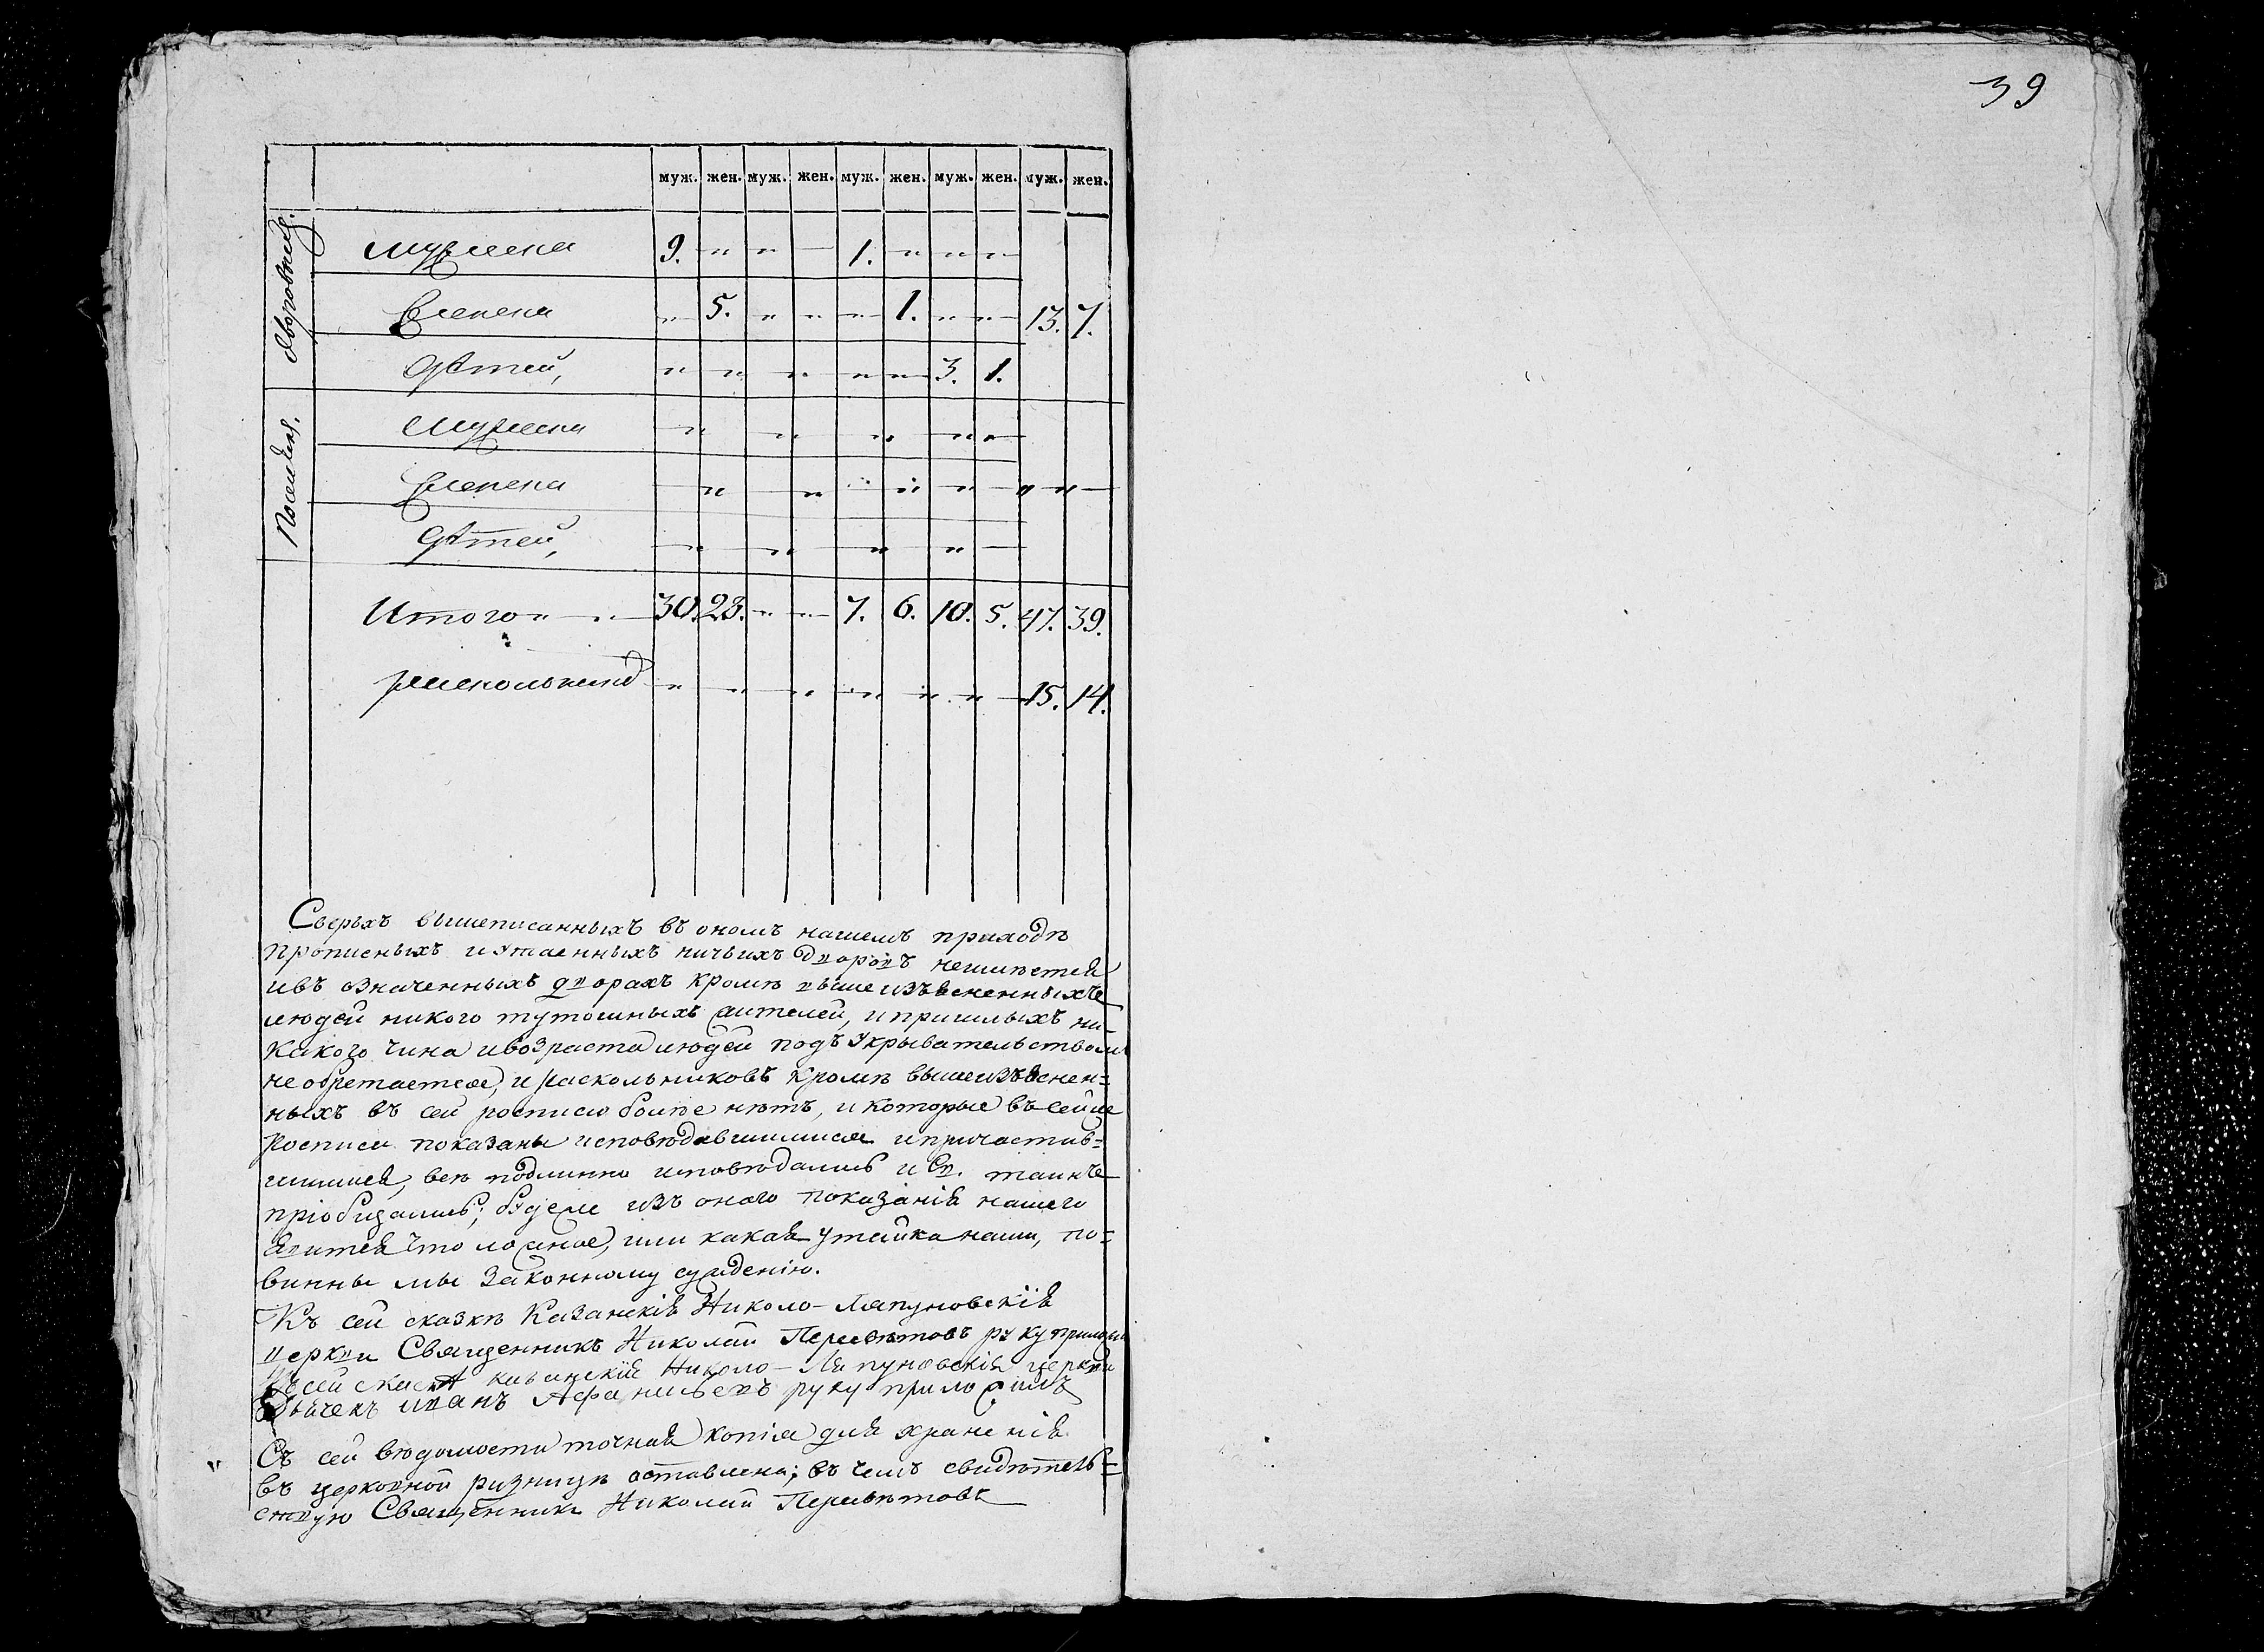 39
муж. жен. муж. жен. муж. жен. муж. жен. муж. жен.
Дворовые.
мужеска 9. „ „ — 1. „ „ „
женска „ 5. „ „ „ 1. „ „ 13. 7.
дѣтей, „ „ „ „ „ 3. 1.
мужеска „ „ „ „ „
женска „ „ „ „ „ „ „
дѣтей, „ „ „ „
Итого „ „ 30. 23. „ „ 7. 6. 10. 5. 47. 39.
раскольниковъ „ „ „ „ „ „ 15. 14.
Сверьхъ вышеписанныхъ въ ономъ нашемъ приходѣ
прописныхъ и утаенныхъ ничьихъ дворовъ неимѣется
ивъ означенныхъ дворахъ кромѣ вышеизъясненныхъ
людей никого тутошныхъ жителей, и пришлыхъ ни-
какого чина ивозраста людей подъ укрывательствомъ
не обретается, и раскольниковъ кромѣ вышеизъяснен=
ныхъ въ сей росписи болѣе нѣтъ, и которые въ сей же
росписи показаны исповѣдавшимися ипричастив=
шимися, всѣ подлинно исповѣдались и Св. таинъ
пріобщались; будеже изъ онаго показанія нашего
явится что ложное, или какая утайка нами, по=
винны мы законному сужденію.
Къ сей сказкѣ Казанскія Николо-Ляпуновскія
церкви Священникъ Николай Пересвѣтовъ руку приложилъ
Къ сей скаскѣ казанскія Николо-Ляпуновскія церкви
Дьячекъ иванъ Афанасьевъ руку приложилъ
Съ сей вѣдомости точная копія для храненія
въ церковной ризницѣ оставлена; въ чемъ свидѣтель=
ствую Священникъ Николай Пересвѣтовъ